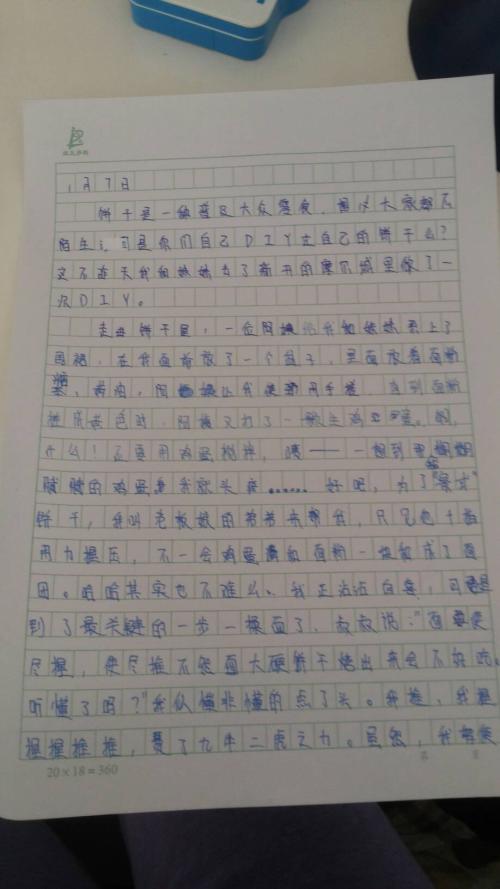 1月7日
饼干是一种普及大众零食,想必大家都不
陌生,可是你们自己DIY过自己的饼干么?
这不昨天我和妹妹去了新开的里做了一
次DIY。
走进饼干屋,一位阿姨给我和妹妹系上了
围裙,在我面前放了一个盆子,里面放着面粉
糖、黄油,阿姨让我使劲用手搓,直到面粉
变成黄色时,阿姨又打了一个生鸡蛋。啊,
什么!还要用鸡蛋搅拌,咦——一想到黏糊糊
腻腻的鸡蛋我就头疼……好吧,为了
饼干,我叫老板娘的爷爷来帮我,只见他十指
用力握压,不一会鸡蛋和面粉一块变成了面
团。哈哈其实也不难么。我正沾沾自喜,可是
到了最关键的一步—揉面了,叔叔说:"面要使
尽揉,使尽揉不然面太硬饼干烤出来会不好吃。
听懂了吗?"我似懂非懂的点了头。我揉,我握
握握揉揉,费了九牛二虎之力。虽然,我努使
20×18=360
第 页